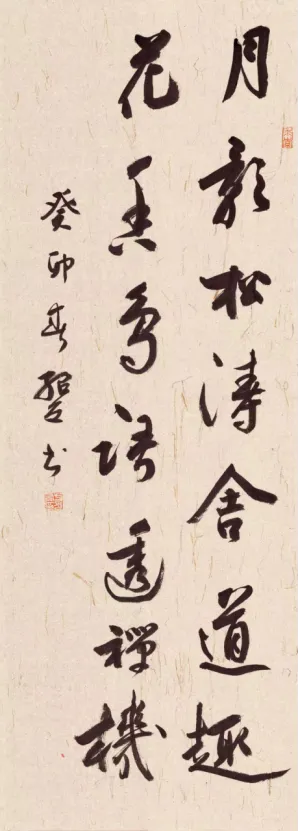 月影松濤含道趣
花香鳥語透禪機
癸卯春 书